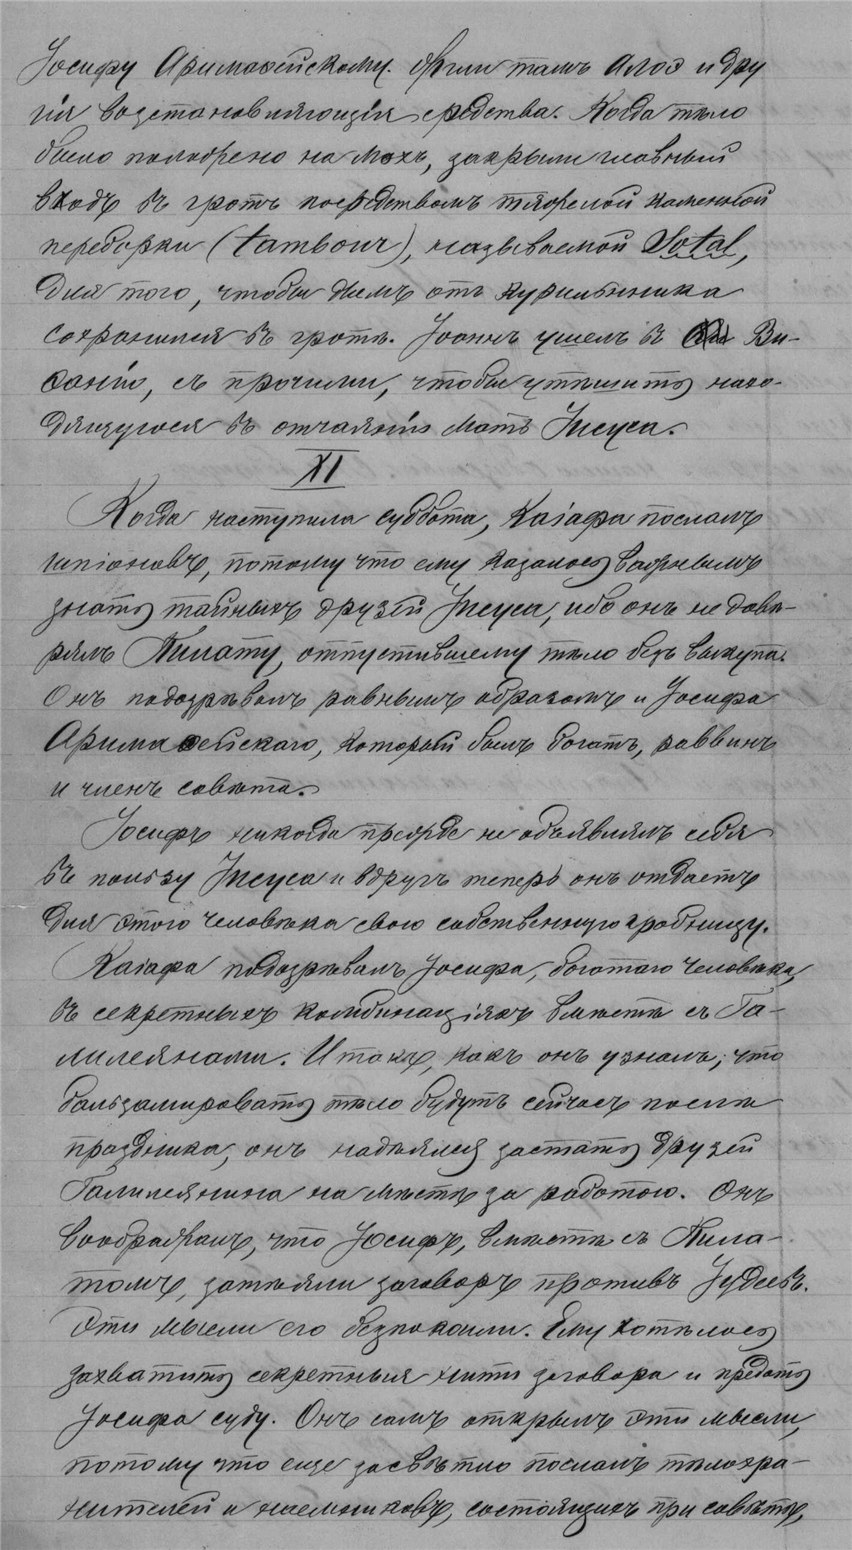 Іосифу Аримаѳейскому. жгли тамъ алоэ и дру
гія возстановляющія средства. Когда тѣло
было положено на мохъ, закрыли главный
входъ въ гротъ посредствомъ тяжелой каменной
переборки (tambour), называемой Sotal,
для того, чтобы дымъ отъ курильника
сохранился въ гротѣ. Іоаннъ ушелъ въ Ви-
ѳанію, съ прочими, чтобы утѣшить нахо-
дящуюся въ отчаяніи мать Іисуса.
XI
Когда наступила суббота, Каіафа послалъ
шпіоновъ, потому что ему казалось важнымъ
знать тайныхъ друзей Іисуса, ибо онъ не довѣ-
рялъ Пилату, отпустившему тѣло безъ выкупа.
Онъ подозрѣвалъ равнымъ образомъ и Іосифа
Аримаѳейскаго, который былъ богатъ, раввинъ
и членъ совѣта.
Іосифъ никогда прежде не объявлялъ себя
въ пользу Іисуса и вдругъ теперь онъ отдаетъ
для этого человѣка свою собственную гробницу.
Каіафа подозрѣвалъ Іосифа, богатаго человѣка,
въ секретныхъ комбинаціяхъ вмѣстѣ съ Га-
лилеянами. И такъ, какъ онъ узналъ, что
бальзамировать тѣло будутъ сейчасъ послѣ
праздника, онъ надѣялся застать друзей
Галилеянина на мѣстѣ за работою. Онъ
воображалъ, что Іосифъ, вмѣстѣ съ Пила-
томъ, затѣяли заговоръ противъ Іудеевъ.
Эти мысли его безпокоили. Ему хотѣлось
захватить секретныя нити заговора и предать
Іосифа суду. Онъ самъ открылъ эти мысли,
потому что еще засвѣтло послалъ тѣлохра-
нителей и наемниковъ, состоящихъ при совѣтѣ,